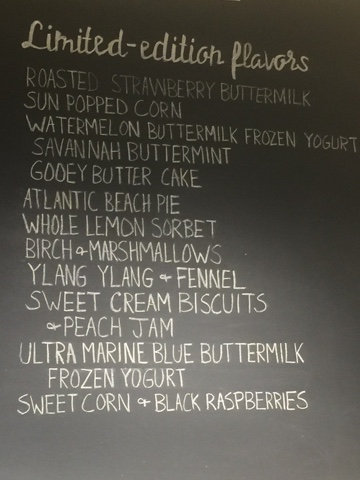 Limited-edition flavors
ROASTED STRAWBERRY BUTTERMILK
SUN POPPED CORN
WATERMELON BUTTERMILK FROZEN YOGURT
SAVANNAH BUTTERMINT
GOOEY BUTTER CAKE
ATLANTIC BEACH PIE
WHOLE LEMON SORBET
BIRCH & MARSHMALLOWS
YLANG YLANG & FENNEL
SWEET CREAM BISCUITS
& PEACH JAM
ULTRA MARINE BLUE BUTTERMILK
FROZEN YOGURT
SWEET CORN & BLACK RASPBERRIES